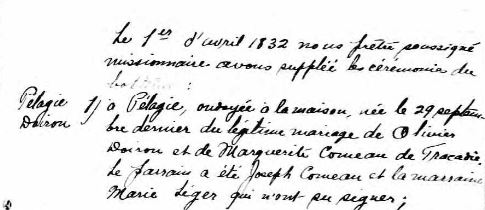 Le 1er d'avril 1832 nous prêtre soussigné
missionnaire avons suppléé les cérémonies du
Pélagie
Doiron
1) à Pélagie, ondoyée à la maison, née le 29 septem-
bre dernier du légitime mariage de Olivier
Doiron et de Marguerite Comeau de Tracadie.
Le parrain a été Joseph Comeau et la marraine
Marie Léger qui n'ont su signer;